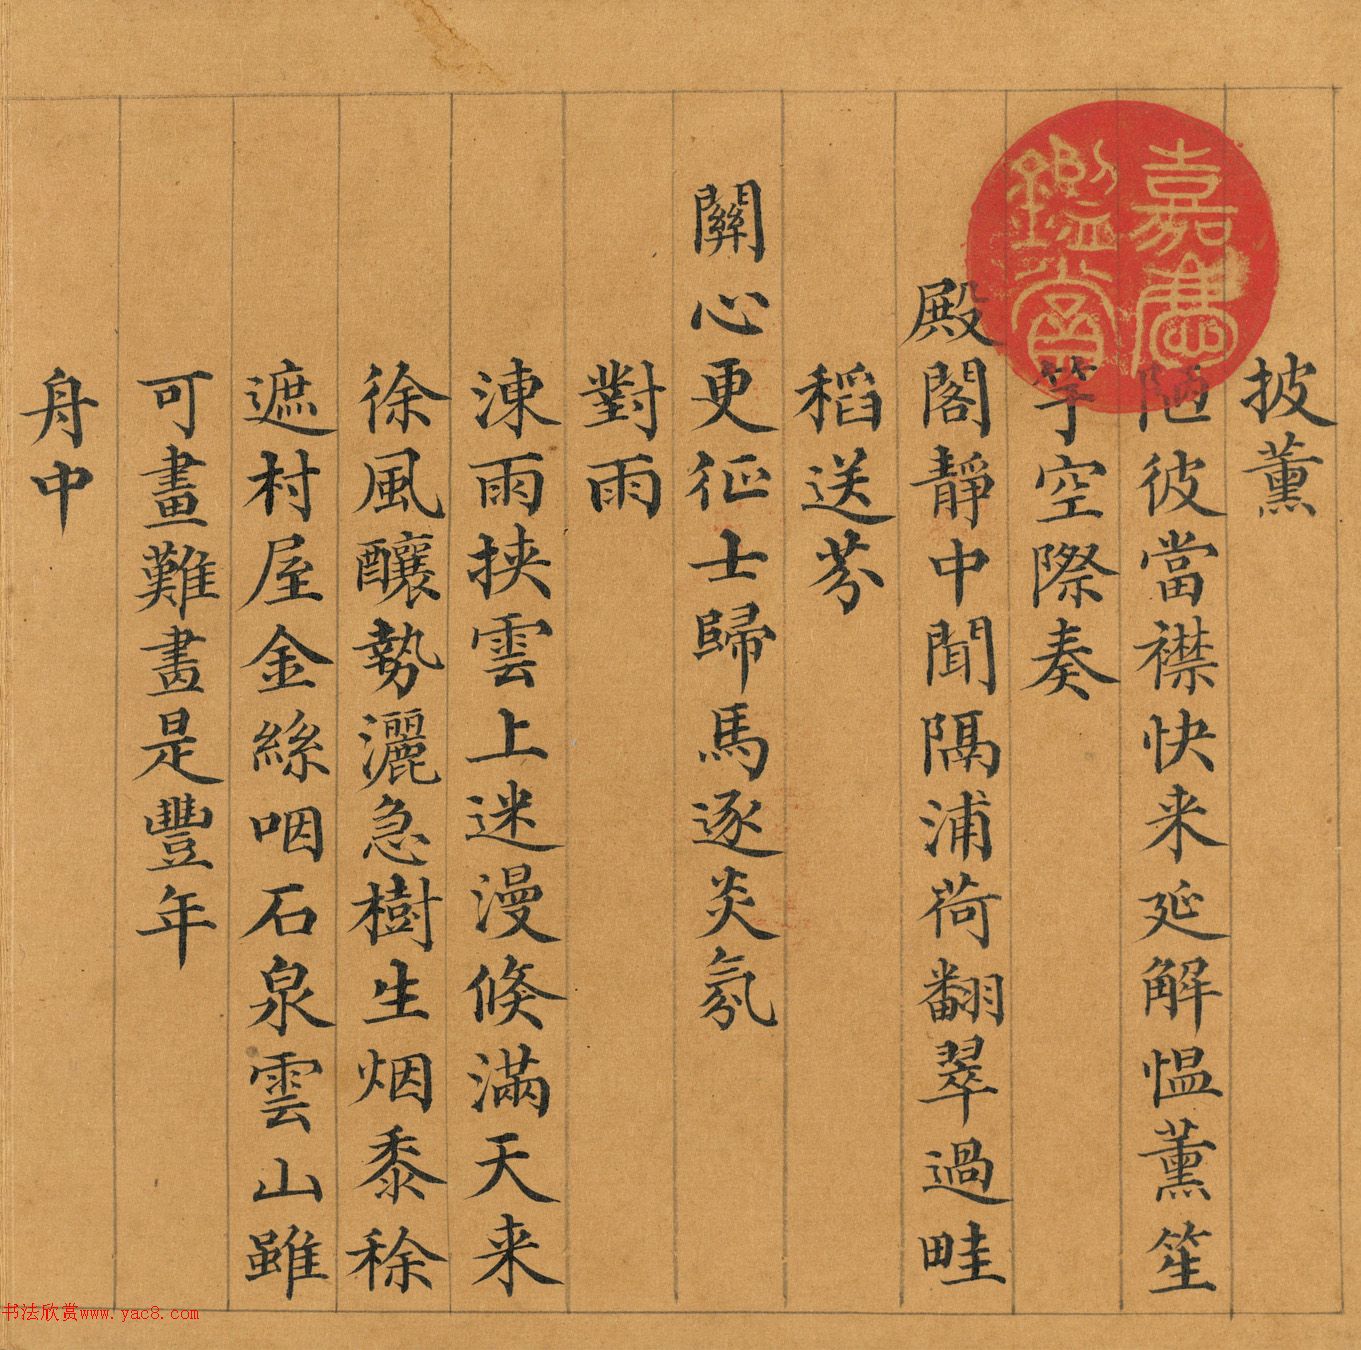 披薰
陋彼當襟快来延解愠薰笙
竽空際奏
殿閣靜中聞隔浦荷翻翠過畦
稻送芬
關心更征士歸馬逐炎氛
對雨
涷雨挟雲上迷漫倏滿天来
徐風釀勢灑急樹生烟黍稌
遮村屋金絲咽石泉雲山雖
可畫難畫是豐年
舟中
嘉慶
鑑賞
书法欣赏www.yac8.com